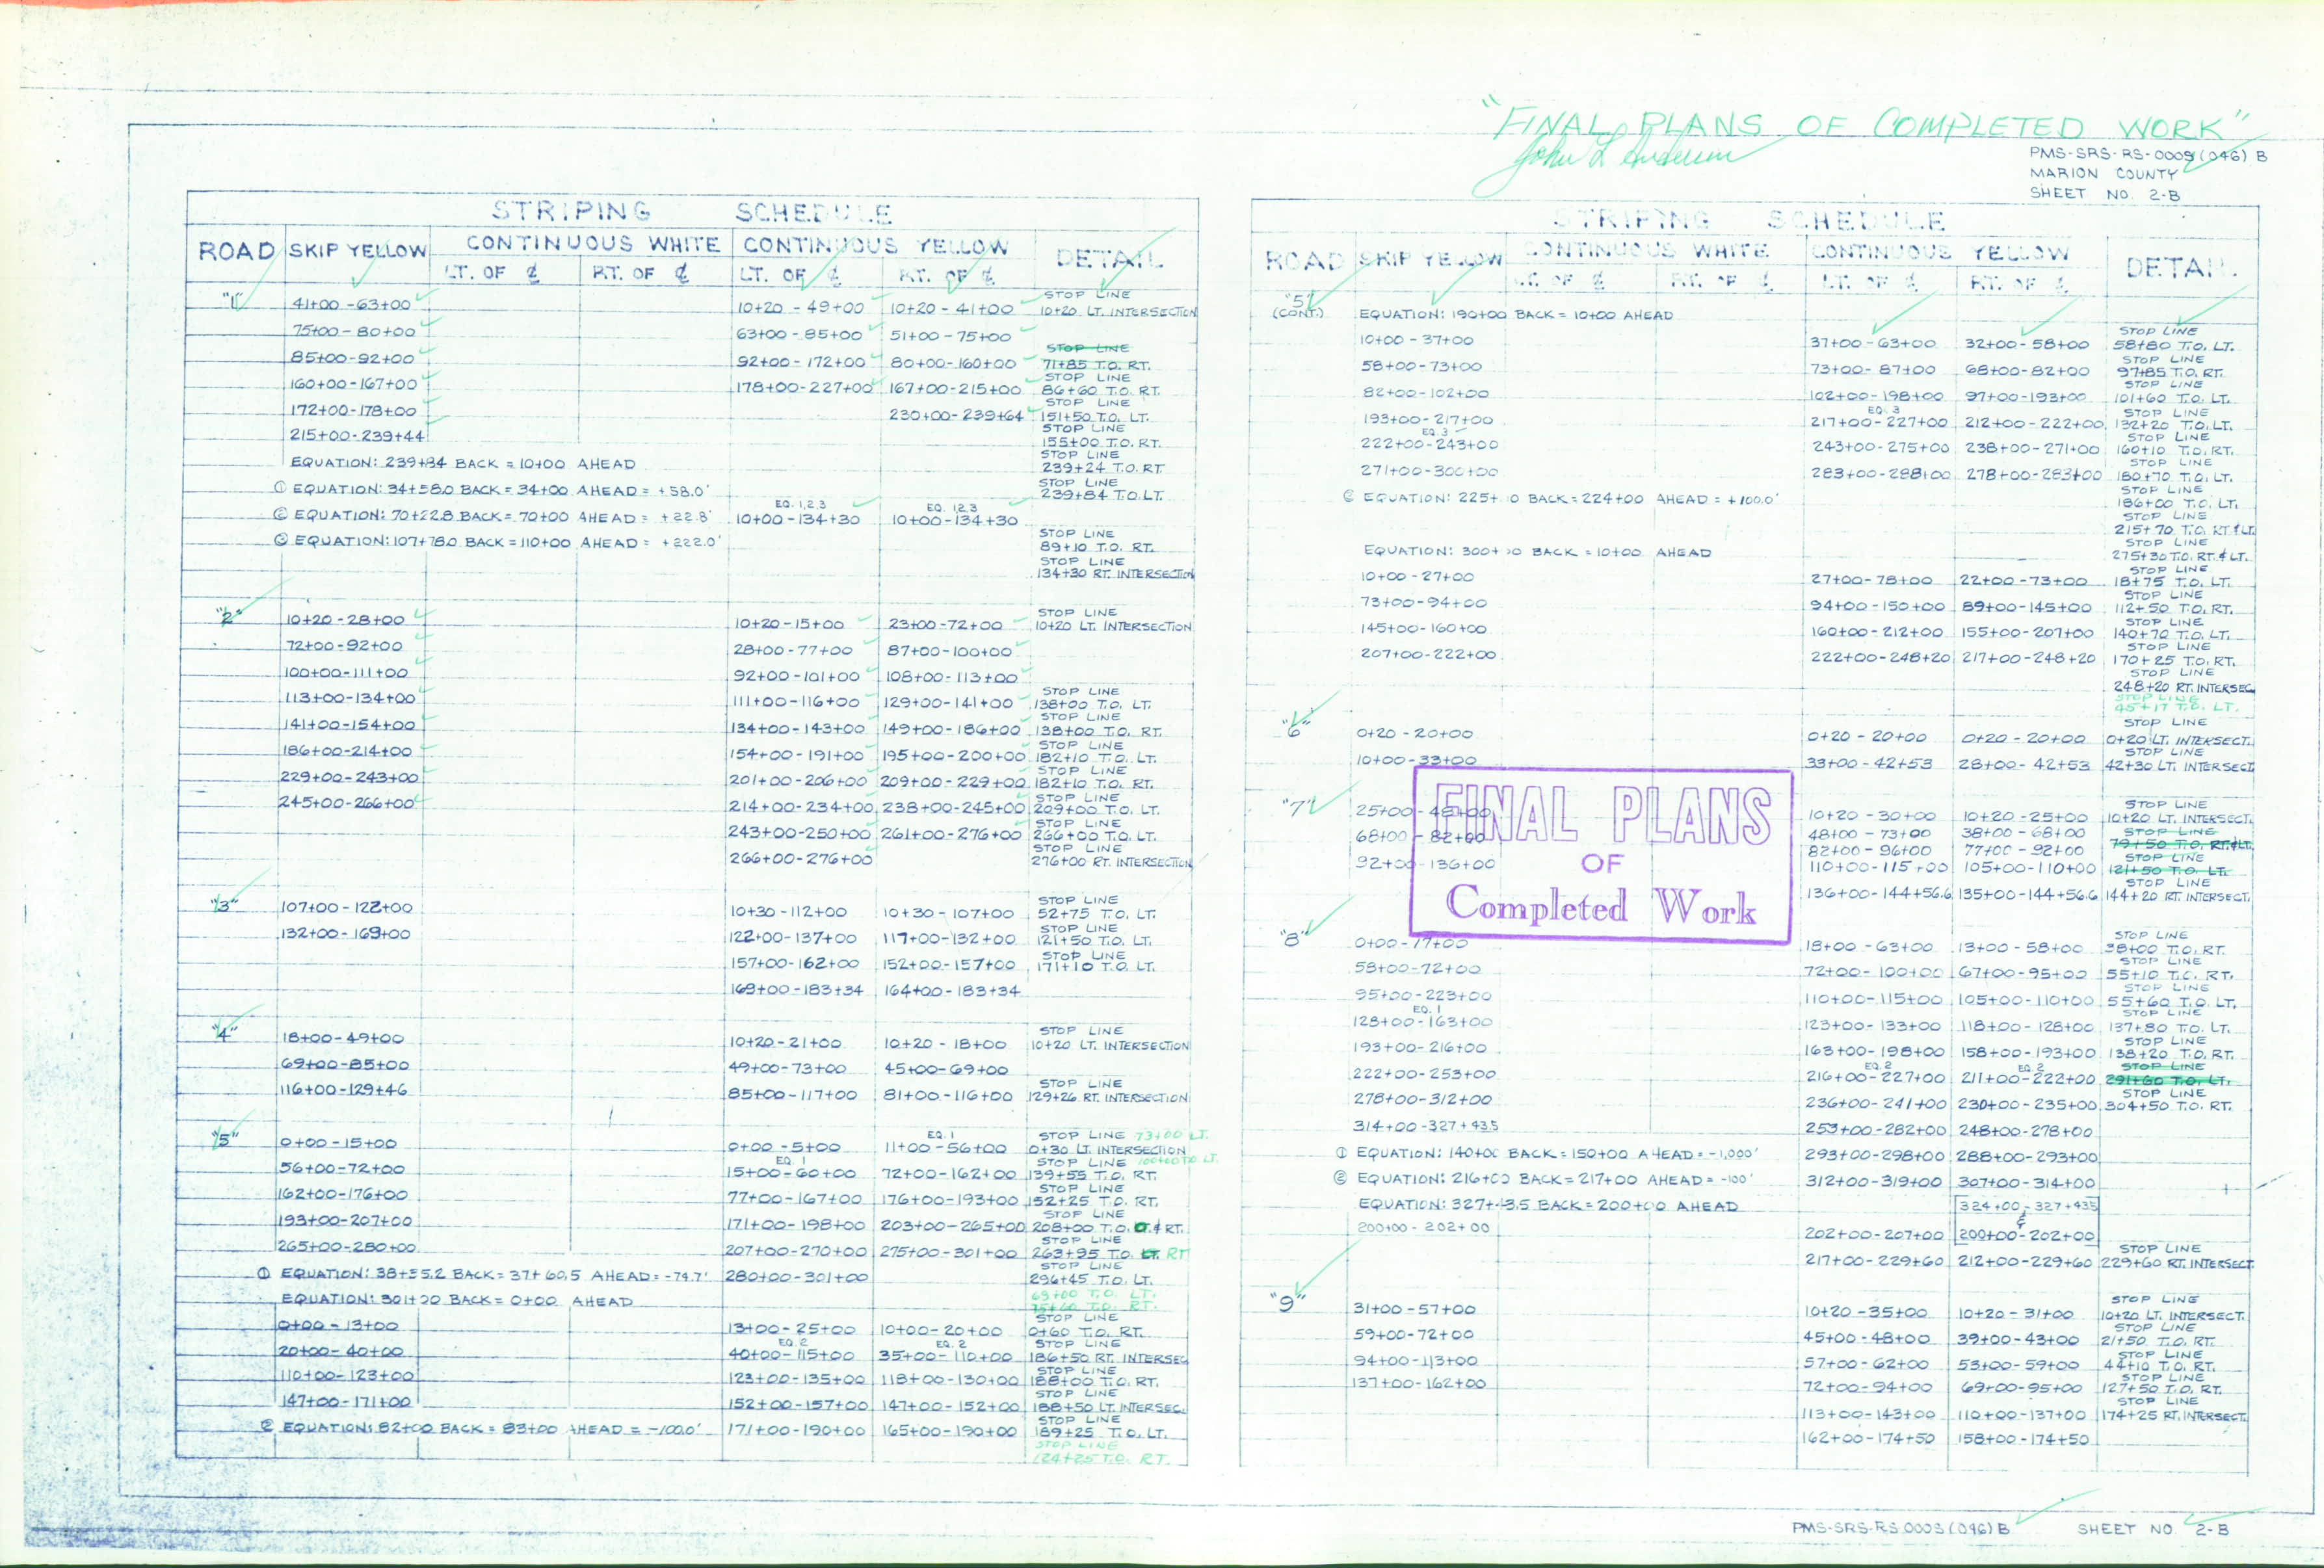 "FINAL PLANS OF COMPLETED WORK"
John L Anderson
PMS-SRS-RS-0009(046) B
MARION COUNTY
SHEET NO. 2-B
STRIPING SCHEDULE
ROAD SKIP YELLOW CONTINUOUS WHITE CONTINUOUS YELLOW DETAIL
LT. OF ℄ RT. OF ℄ LT. OF ℄ RT. OF ℄
"1" 41+00-63+00 10+20 - 49+00 10+20 - 41+00 STOP LINE
10+20 LT. INTERSECTION
75+00-80+00 63+00-85+00 51+00-75+00
STOP LINE
85+00-92+00 92+00-172+00 80+00-160+00 71+85 T.O. RT.
STOP LINE
160+00-167+00 178+00-227+00 167+00-215+00 86+60 T.O. RT.
STOP LINE
172+00-178+00 230+00-239+64 151+50 T.O. LT.
STOP LINE
215+00-239+44 155+00 T.O. RT.
STOP LINE
EQUATION: 239+84 BACK = 10+00 AHEAD 239+24 T.O. RT
STOP LINE
① EQUATION: 34+58.0 BACK = 34+00 AHEAD = +58.0' 239+84 T.O. LT.
EQ. 1,2,3 EQ. 1,2,3
② EQUATION: 70+22.8 BACK = 70+00 AHEAD = +22.8' 10+00-134+30 10+00-134+30
STOP LINE
③ EQUATION: 107+78.0 BACK = 110+00 AHEAD = +222.0' 89+10 T.O. RT.
STOP LINE
134+30 RT. INTERSECTION
"2" 10+20-28+00 10+20-15+00 23+00-72+00 STOP LINE
10+20 LT. INTERSECTION
72+00-92+00 28+00-77+00 87+00-100+00
100+00-111+00 92+00-101+00 108+00-113+00
STOP LINE
113+00-134+00 111+00-116+00 129+00-141+00 138+00 T.O. LT.
STOP LINE
141+00-154+00 134+00-143+00 149+00-186+00 138+00 T.O. RT.
STOP LINE
186+00-214+00 154+00-191+00 195+00-200+00 182+10 T.O. LT.
STOP LINE
229+00-243+00 201+00-206+00 209+00-229+00 182+10 T.O. RT.
STOP LINE
245+00-266+00 214+00-234+00 238+00-245+00 209+00 T.O. LT.
STOP LINE
243+00-250+00 261+00-276+00 266+00 T.O. LT.
STOP LINE
266+00-276+00 276+00 RT. INTERSECTION
STOP LINE
"3" 107+00-122+00 10+30-112+00 10+30-107+00 52+75 T.O. LT.
STOP LINE
132+00-169+00 122+00-137+00 117+00-132+00 121+50 T.O. LT.
STOP LINE
157+00-162+00 152+00-157+00 171+10 T.O. LT.
169+00-183+34 164+00-183+34
STOP LINE
"4" 18+00-49+00 10+20-21+00 10+20-18+00 10+20 LT. INTERSECTION
69+00-85+00 49+00-73+00 45+00-69+00
STOP LINE
116+00-129+46 85+00-117+00 81+00-116+00 129+26 RT. INTERSECTION
EQ. 1 STOP LINE 73+00 LT.
"5" 0+00-15+00 0+00-5+00 11+00-56+00 0+30 LT. INTERSECTION
EQ. 1 STOP LINE
56+00-72+00 15+00-60+00 72+00-162+00 139+55 T.O. RT.
STOP LINE
162+00-176+00 77+00-167+00 176+00-193+00 152+25 T.O. RT.
STOP LINE
193+00-207+00 171+00-198+00 203+00-265+00 208+00 T.O. & RT.
STOP LINE
265+00-280+00 207+00-270+00 275+00-301+00 263+95 T.O. LT. RT
STOP LINE
① EQUATION: 38+35.2 BACK = 37+60.5 AHEAD = -74.7' 280+00-301+00 296+45 T.O. LT.
69+00 T.O. LT.
EQUATION: 301+00 BACK = 0+00 AHEAD
75+60 T.O. RT.
STOP LINE
0+00-13+00 13+00-25+00 10+00-20+00 0+60 T.O. RT.
EQ. 2 EQ. 2 STOP LINE
20+00-40+00 40+00-115+00 35+00-110+00 186+50 RT. INTERSEC.
STOP LINE
110+00-123+00 123+00-135+00 118+00-130+00 188+00 T.O. RT.
STOP LINE
147+00-171+00 152+00-157+00 147+00-152+00 188+50 LT. INTERSEC.
STOP LINE
② EQUATION: 82+00 BACK = 83+00 AHEAD = -100.0' 171+00-190+00 165+00-190+00 189+25 T.O. LT.
STOP LINE
124+25 T.O. RT.
STRIPING SCHEDULE
ROAD SKIP YELLOW CONTINUOUS WHITE CONTINUOUS YELLOW DETAIL
LT. OF ℄ RT. OF ℄ LT. OF ℄ RT. OF ℄
"5" (CONT.) EQUATION: 190+00 BACK = 10+00 AHEAD
STOP LINE
10+00-37+00 37+00-63+00 32+00-58+00 58+80 T.O. LT.
STOP LINE
58+00-73+00 73+00-87+00 68+00-82+00 97+85 T.O. RT.
STOP LINE
82+00-102+00 102+00-198+00 97+00-193+00 101+60 T.O. LT.
EQ. 3 STOP LINE
193+00-217+00 217+00-227+00 212+00-222+00 132+20 T.O. LT.
EQ. 3 STOP LINE
222+00-243+00 243+00-275+00 238+00-271+00 160+10 T.O. RT.
STOP LINE
271+00-300+00 283+00-288+00 278+00-283+00 180+70 T.O. LT.
STOP LINE
③ EQUATION: 225+00 BACK = 224+00 AHEAD = +100.0' 186+00 T.O. LT.
STOP LINE
215+70 T.O. RT. & LT.
STOP LINE
EQUATION: 300+00 BACK = 10+00 AHEAD 275+30 T.O. RT. & LT.
STOP LINE
10+00-27+00 27+00-78+00 22+00-73+00 18+75 T.O. LT.
STOP LINE
73+00-94+00 94+00-150+00 89+00-145+00 112+50 T.O. RT.
STOP LINE
145+00-160+00 160+00-212+00 155+00-207+00 140+70 T.O. LT.
STOP LINE
207+00-222+00 222+00-248+20 217+00-248+20 170+25 T.O. RT.
STOP LINE
248+20 RT. INTERSEC.
STOP LINE
45+17 T.O. LT.
STOP LINE
"6" 0+20-20+00 0+20-20+00 0+20-20+00 0+20 LT. INTERSECT.
STOP LINE
10+00-33+00 33+00-42+53 28+00-42+53 42+30 LT. INTERSECT
STOP LINE
"7" 25+00-48+00 10+20-30+00 10+20-25+00 10+20 LT. INTERSECT.
68+00-82+00 48+00-73+00 38+00-68+00 STOP LINE
82+00-96+00 77+00-92+00 79+50 T.O. RT. & LT.
STOP LINE
92+00-136+00 110+00-115+00 105+00-110+00 121+50 T.O. LT.
STOP LINE
136+00-144+56.6 135+00-144+56.6 144+20 RT. INTERSECT.
FINAL PLANS
OF
Completed Work
STOP LINE
"8" 0+00-77+00 18+00-63+00 13+00-58+00 38+00 T.O. RT.
STOP LINE
58+00-72+00 72+00-100+00 67+00-95+00 55+10 T.O. RT.
STOP LINE
95+00-223+00 110+00-115+00 105+00-110+00 55+60 T.O. LT.
EQ. 1 STOP LINE
128+00-163+00 123+00-133+00 118+00-128+00 137+80 T.O. LT.
STOP LINE
193+00-216+00 163+00-198+00 158+00-193+00 138+20 T.O. RT.
EQ. 2 EQ. 2 STOP LINE
222+00-253+00 216+00-227+00 211+00-222+00 291+60 T.O. LT.
STOP LINE
278+00-312+00 236+00-241+00 230+00-235+00 304+50 T.O. RT.
314+00-327+43.5 253+00-282+00 248+00-278+00
① EQUATION: 140+00 BACK = 150+00 AHEAD = -1,000' 293+00-298+00 288+00-293+00
② EQUATION: 216+00 BACK = 217+00 AHEAD = -100' 312+00-319+00 307+00-314+00
EQUATION: 327+43.5 BACK = 200+00 AHEAD 324+00-327+43.5
&
200+00-202+00 202+00-207+00 200+00-202+00
STOP LINE
217+00-229+60 212+00-229+60 229+60 RT. INTERSECT.
STOP LINE
"9" 31+00-57+00 10+20-35+00 10+20-31+00 10+20 LT. INTERSECT.
STOP LINE
59+00-72+00 45+00-48+00 39+00-43+00 21+50 T.O. RT.
STOP LINE
94+00-113+00 57+00-62+00 53+00-59+00 44+10 T.O. RT.
STOP LINE
137+00-162+00 72+00-94+00 69+00-95+00 127+50 T.O. RT.
STOP LINE
113+00-143+00 110+00-137+00 174+25 RT. INTERSECT.
162+00-174+50 158+00-174+50
PMS-SRS-RS 0003(046)B SHEET NO. 2-B